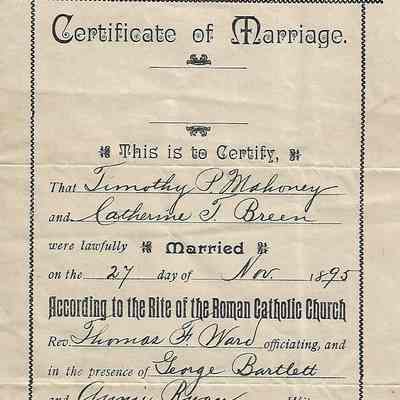 Certificate of Marriage.
This is to Certify,
That Timothy P. Mahoney
and Catherine T. Breen
were lawfully Married
on the 27 day of Nov. 1895
According to the Rite of the Roman Catholic Church
Rev. Thomas F. Ward officiating, and
in the presence of George Bartlett
and Annie Ryan